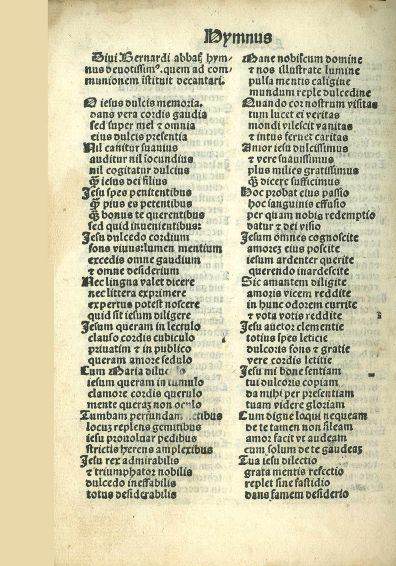 Hymnus
Diui Bernardi abbatꝭ hym-
nus deuotissimꝰ. quem ad com
munionem istituit decantari.
O iesus dulcis memoria.
dans vera cordis gaudia
sed super mel ⁊ omnia
eius dulcis presentia
Nil canitur suauius
auditur nil iocundius
nil cogitatur dulcius
qͣ̃ iesus dei filius
Jesu spes penitentibus
qͣ̃ pius es petentibus
qͣ̃ bonus te querentibus
sed quid inuenientibus:
Jesu dulcedo cordium
fons viuus: lumen mentium
excedis omne gaudium
⁊ omne desiderium
Nec lingua valet dicere
nec littera exprimere
expertus potest noscere
quid sit iesum diligere
Jesum queram in lectulo
clauso cordis cubiculo
priuatim ⁊ in publico
queram amore sedulo
Cum Maria
iesum queram in tumulo
clamore cordis querulo
mente queraꝫ non oculo
Tumbam perfundam
locuꝫ replens gemitibus
iesu prouoluar pedibus
strictis herens amplexibus
Jesu rex admirabilis
⁊ triumphator nobilis
dulcedo ineffabilis
totus desiderabilis
Mane nobiscum domine
⁊ nos illustrate lumine
pulsa mentis caligine
mundum reple dulcedine
Quando cor nostrum visitas
tum lucet ei veritas
mondi vilescit vanitas
⁊ intus feruet caritas
Amor iesu dulcissimus
⁊ vere suauissimus
plus milies gratissimus
qͣ̃ dicere sufficimus
Hoc probat eius passio
hoc sanguinis effusio
per quam nobis redemptio
datur ⁊ dei visio
Jesum omnes cognoscite
amoreꝫ eius poscite
iesum ardenter querite
querendo inardescite
Sic amantem diligite
amoris vicem reddite
in hunc odorem currite
⁊ vota votis reddite
Jesu auctor clementie
totius spes leticie
dulcoris fons ⁊ gratie
vere cordis letitie
Jesu mi bone sentiam
tui dulcoris copiam
da mihi per presentiam
tuam videre gloriam
Cum digne loqui nequeam
de te tamen non sileam
amor facit vt audeam
cum solum de te gaudeaꝫ
Tua iesu dilectio
grata mentis refectio
replet sine fastidio
dans famem desiderio